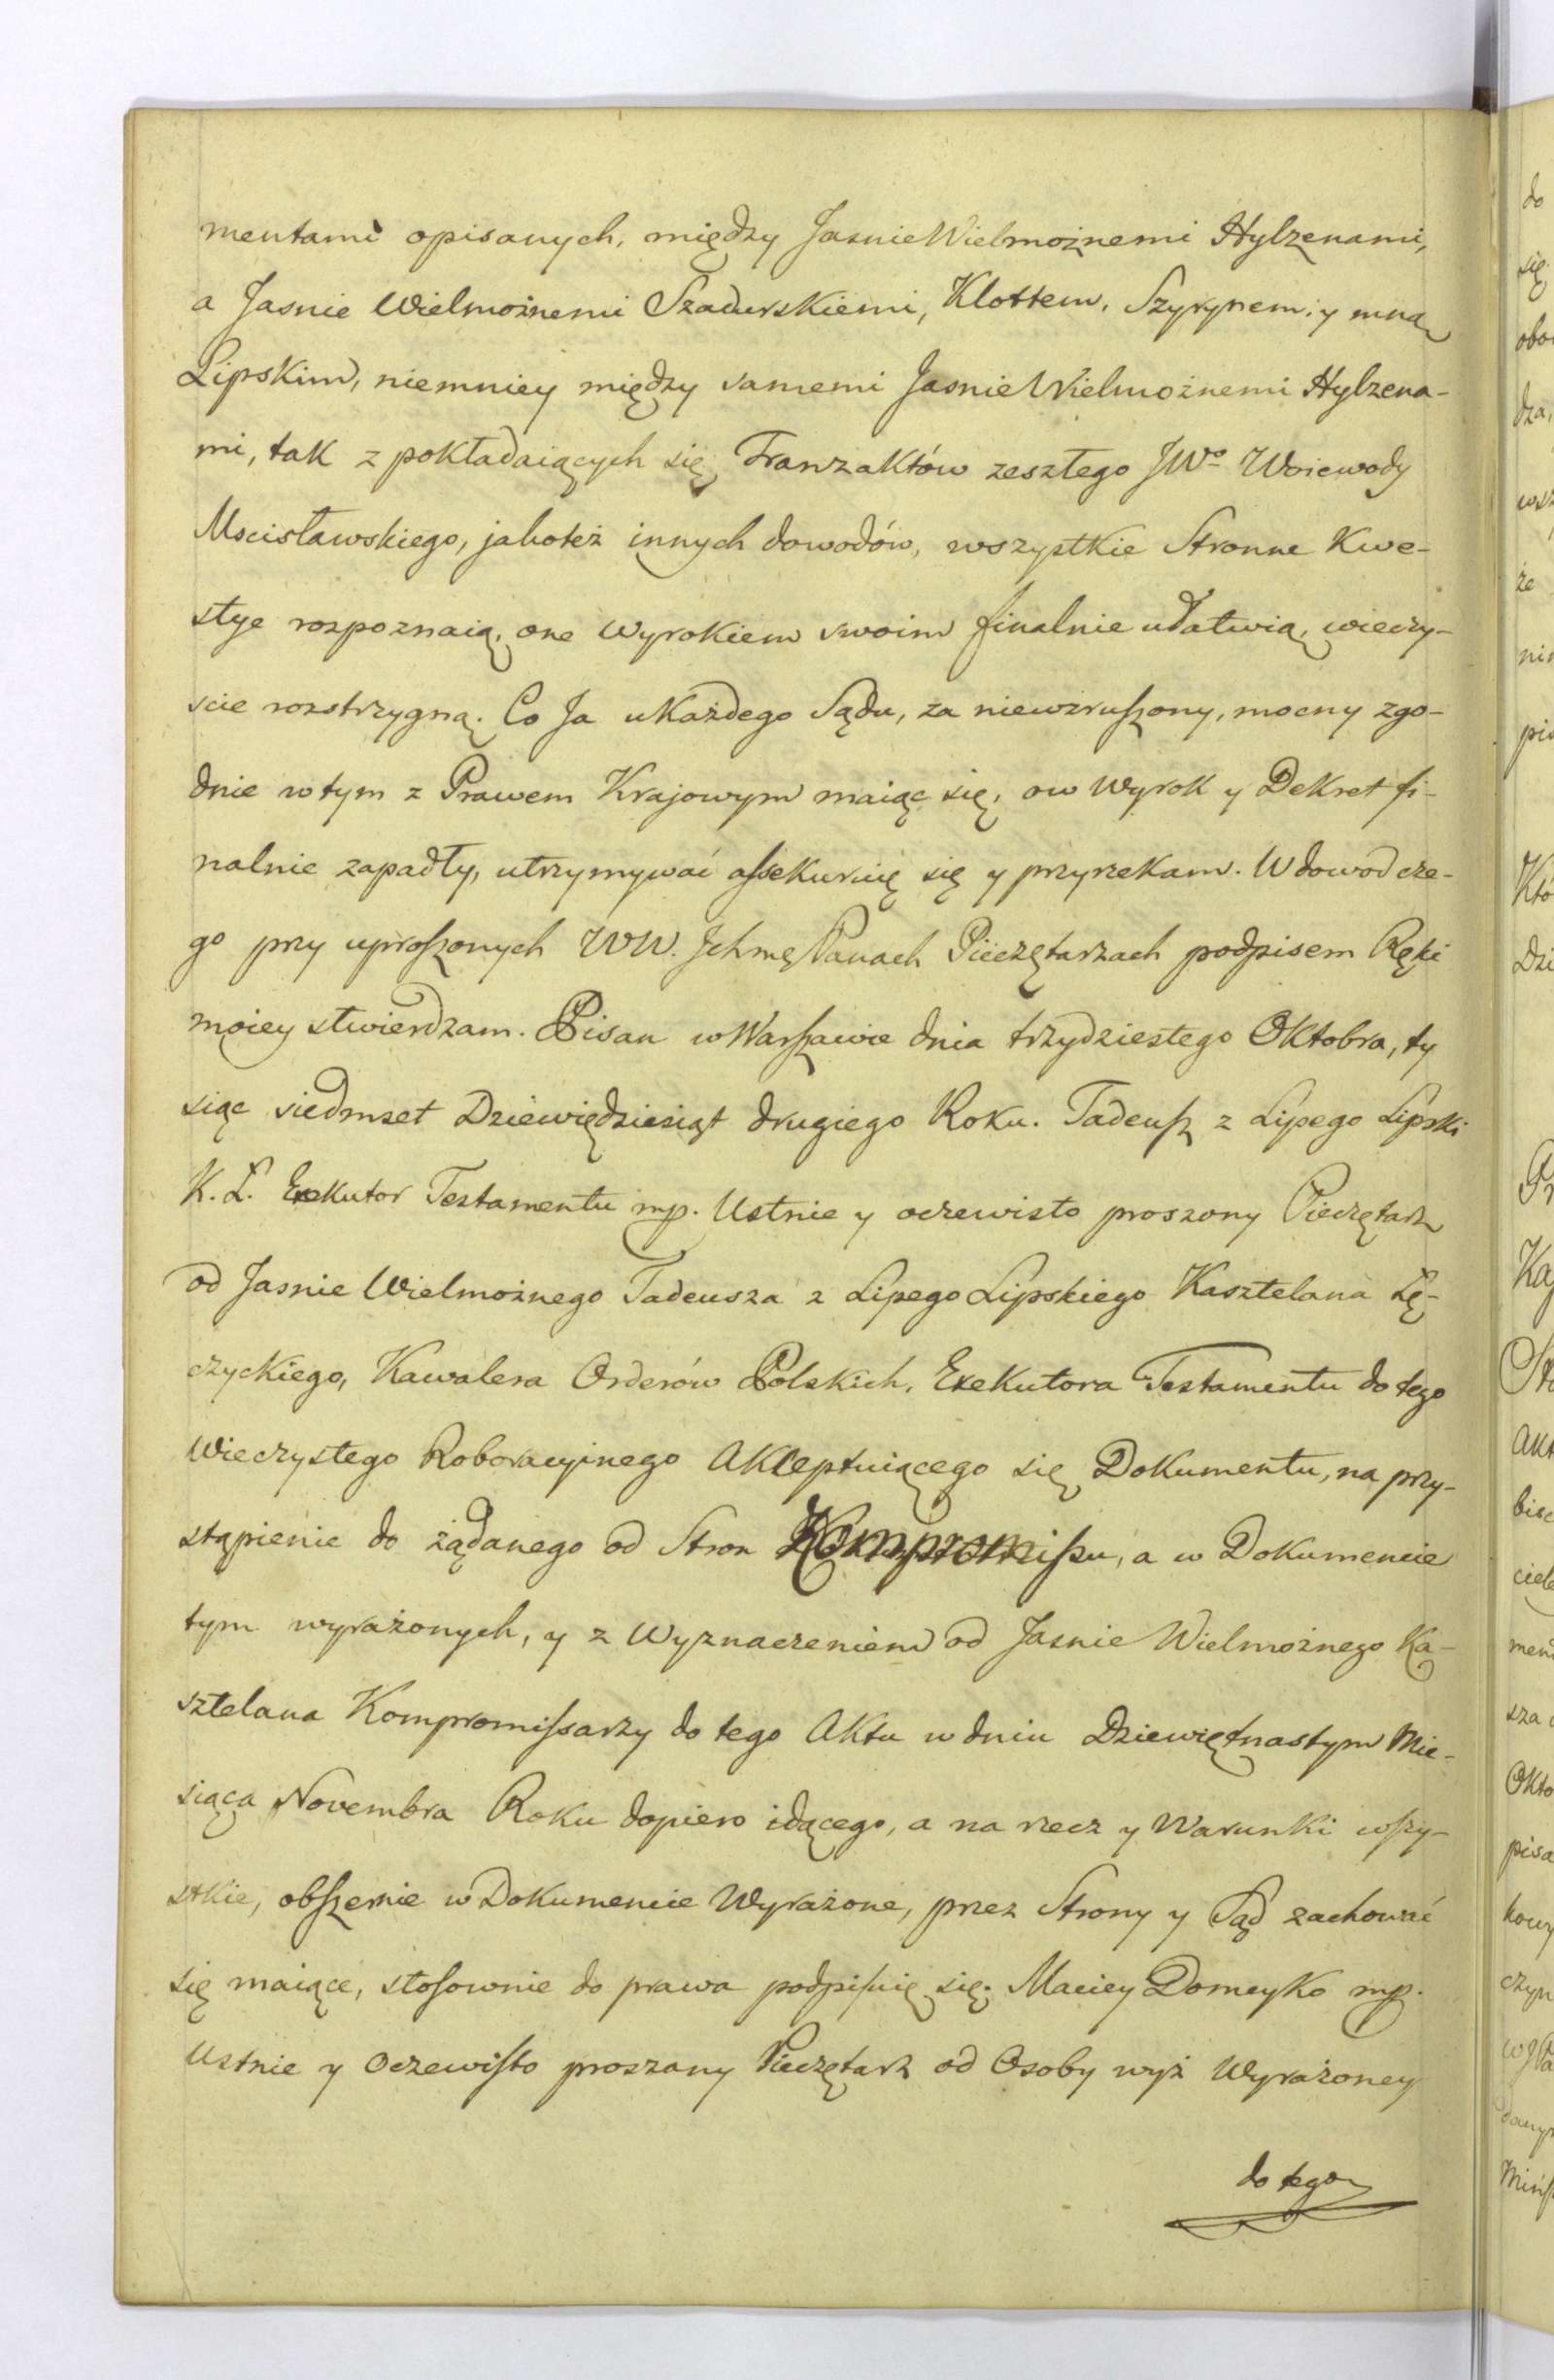 mentami opisanych, między Jasnie Wielmożnemi Hylzenami,
a Jasnie Wielmożnemi Szadurskiemi, Klottem, Szyrynem, y mną
Lipskim, niemniey między samemi Jasnie Wielmożnemi Hylzena-
mi, tak z pokładaiących się Tranzaktów zeszłego JWo Woiewody
Mscisławskiego, jakoteż innych dowodów, wszystkie Stronne Kwe-
stye rozpoznaią, one Wyrokiem swoim finalnie ułatwią, wieczy-
scie rozstrzygną. Co Ja u Każdego Sądu, za niewzruszony, mocny zgo-
dnie w tym z Prawem Krajowym maiąc się, ow Wyrok y Dekret fi-
nalnie zapadły, utrzymywać assekuruię się y przyrzekam. W dowod cze-
go przy uproszonych WW. Jchmę Panach Pieczętarzach podpisem Ręki
moiey stwierdzam. Pisan w Warszawie dnia trzydziestego Oktobra, ty
siąc siedmset Dziewiędziesiąt drugiego Roku. Tadeusz z Lipego Lipski
K. Ł. Exekutor Testamentu mp. Ustnie y oczewisto proszony Pieczętarz
od Jasnie Wielmożnego Tadeusza z Lipego Lipskiego Kasztelana Łę-
czyckiego, Kawalera Orderów Polskich, Exekutora Testamentu do tego
Wieczystego Roboracyinego Akceptuiącego się Dokumentu, na przy-
stąpienie do żądanego od Stron Kompromissu, a w Dokumencie
tym wyrażonych, y z Wyznaczeniem od Jasnie Wielmożnego Ka-
sztelana Kompromissarzy do tego Aktu w dniu Dziewiętnastym Mie-
siąca Novembra Roku dopiero idącego, a na rzecz y Warunki wszy-
stkie, obszernie w Dokumencie Wyrażone, przez Strony y Sąd zachować
się maiące, stosownie do prawa podpisuię się. Maciey Domeyko mp.
Ustnie y Oczewisto proszany Pieczętarz od Osoby wyż Wyrażoney
do tego